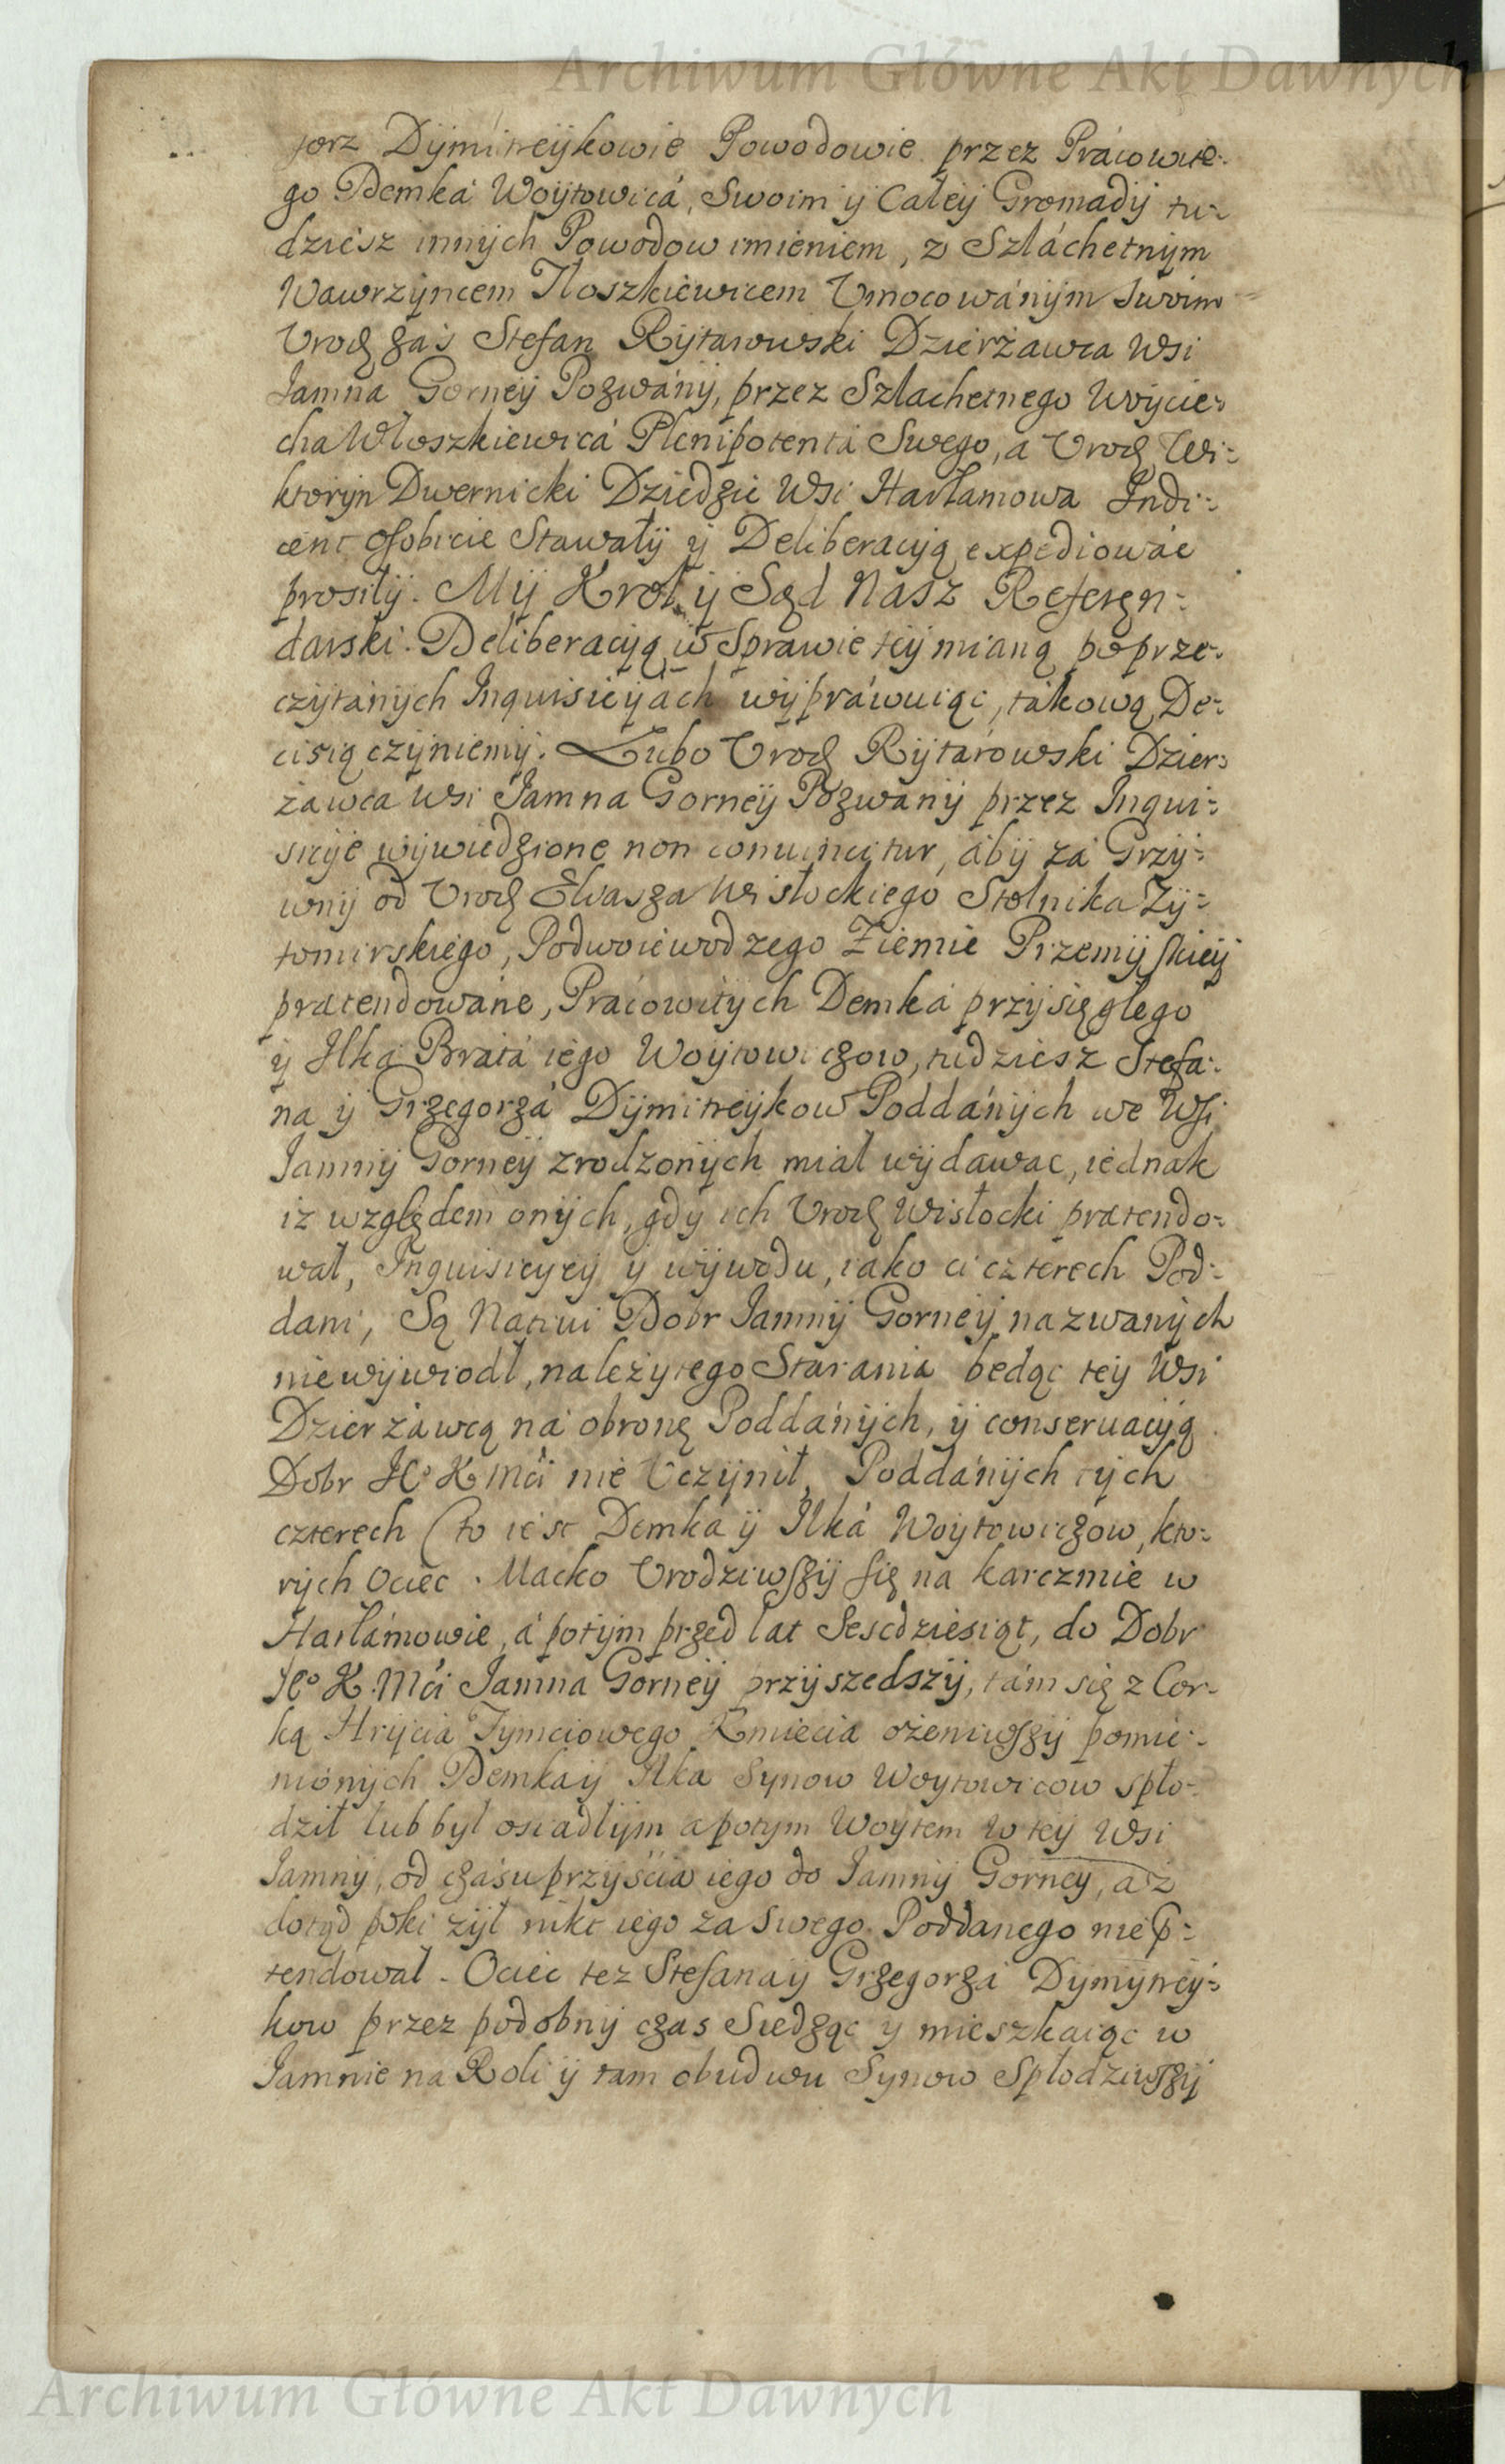 Archiwum Główne Akt Dawnych
gorz Dymitreykowie Powodowie przez Prácowite:
go Demká Woytowicá, Swoim y Całey Gromady tu:
dziesz innych Powodow imieniem, z Szláchetnym
Wawrzyncem Noszkiewicem Vmocowánym swoim
Vrodz zaś Stefan Rytarowski Dzierżawca Wsi
Jamna Gorney Pozwány, przez Szlachetnego Woycie:
cha Włoszkiewicá Plenipotentá Swego, a Vrodz Wi:
ktoryn Dwernicki Dziedzic Wsi Harłamowa Indi:
cent osobiscie Stawały y Deliberacyą expediowáć
prosiły. My Krol y Sąd Nasz Referęn:
darski. Deliberacyą w Sprawie tey mianą po prze:
czytánych Inquisicyách wypráwuiąc, tákową De:
cisią czyniemy. Lubo Vrodz Rytarowski Dzier:
żawca Wsi Jamna Gorney Pozwany przez Inqui:
sicye wywiedzione non conuincitur, áby zá Grzy:
wny od Vrodz Eliasza Wisłockiego Stolnika Zy:
tomirskiego, Podwoiewodzego Ziemie Przemyskiey
prætendowáne, Prácowitych Demká przysięgłego
y Ilká Brátá iego Woytowiczow, tudziesz Stefa:
na y Grzegorzá Dymitreykow Poddánych we Wsi
Jamny Gorney zrodzonych miał wydawac, iednak
iż względem onych, gdy ich Vrodz Wisłocki prætendo:
wał, Inquisicyey y wywodu, iáko ci czterech Pod:
dani, Są Natiui Dobr Jamny Gorney nazwanych
niewywiodł, należytego Starania bedąc tey Wsi
Dzierżawcą ná obronę Poddánych, y conseruacyą
Dobr JKo K Mci nie Vczynił, Poddánych tych
czterech (to iest Demká y Ilká Woytowiczow, kto:
rych Ociec Macko Vrodziwszy się na karczmie w
Harłámowie, á potym przed lat Sescdziesiąt, do Dobr
JKo K Mci Jamna Gorney przyszedszy, tám się z Cor:
ką Hrycia Tymciowego Kmiecia ożeniwszy pomie:
nionych Demka y Ilka Synow Woytowicow spło:
dził lub był osiadłym a potym Woytem w tey Wsi
Jamny, od czásu przyścia iego do Jamny Gorney, aż
dotąd poki zył nikt iego za swego Poddanego nie p:
tendował. Ociec tez Stefana y Grzegorzá Dymytrey:
kow przez podobny czas Siedząc y mieszkaiąc w
Jamnie na Roli y tam obudwu Synow Spłodziwszy
Archiwum Główne Akt Dawnych